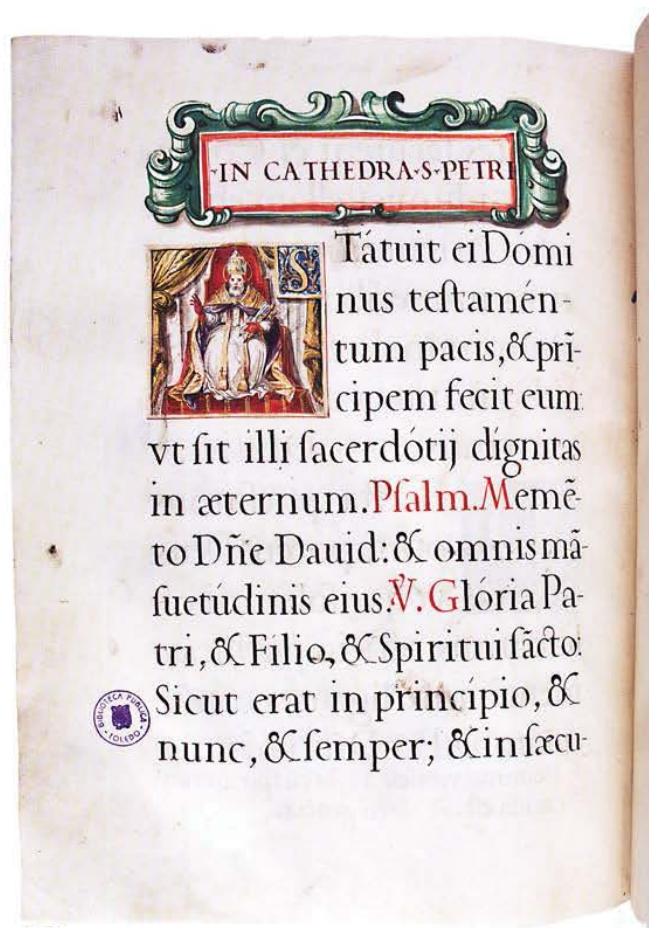 IN CATHEDRA·S·PETRI
S
Tátuit ei Dómi
nus teſtamén-
tum pacis, & prī-
cipem fecit eum:
vt ſit illi ſacerdótij dígnitas
in æternum. Pſalm. Memē-
to Dñe Dauid: & omnis mā-
ſuetúdinis eius. ℣. Glória Pa-
tri, & Fílio, & Spiritui ſācto:
Sicut erat in princípio, &
nunc, & ſemper; & in ſæcu-
BIBLIOTECA PUBLICA
TOLEDO